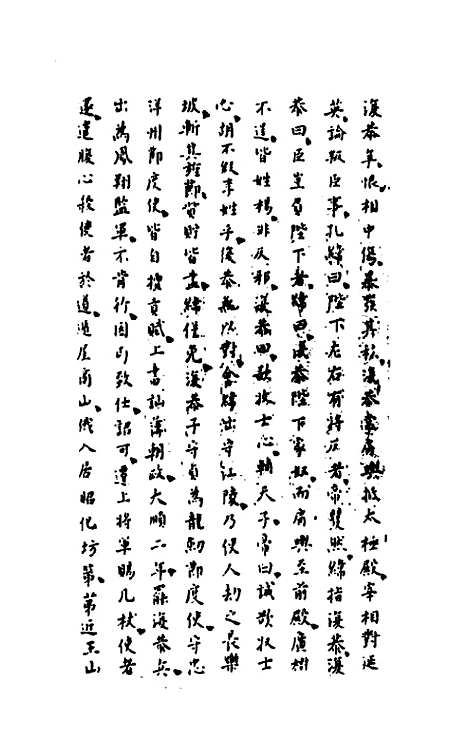 復恭率恨相中傷暴發其私復恭常肩輿抵太極殿宰相對延
英論叛臣事孔緯曰陛下左右有將反者帝矍然緯指復恭復
恭曰臣豈負陛下者緯曰復恭陛下家奴而肩輿至前殿廣樹
不逞皆姓楊非反邪復恭曰欲收士心輔天子帝曰誠欲收士
心胡不假李姓乎復恭無以對會緯出守江陵乃使人劫之長樂
坡斬其旌節貲貯皆盡緯僅免復恭子守貞為龍劍節度使守忠
洋州節度使皆自擅貢賦上書訕薄朝政大順二年罷復恭兵
出為鳳翔監軍不肯行因丐致仕詔可遷上將軍賜几杖使者
還遣腹心殺使者於道遁居商山俄入居昭化坊第第近玉山